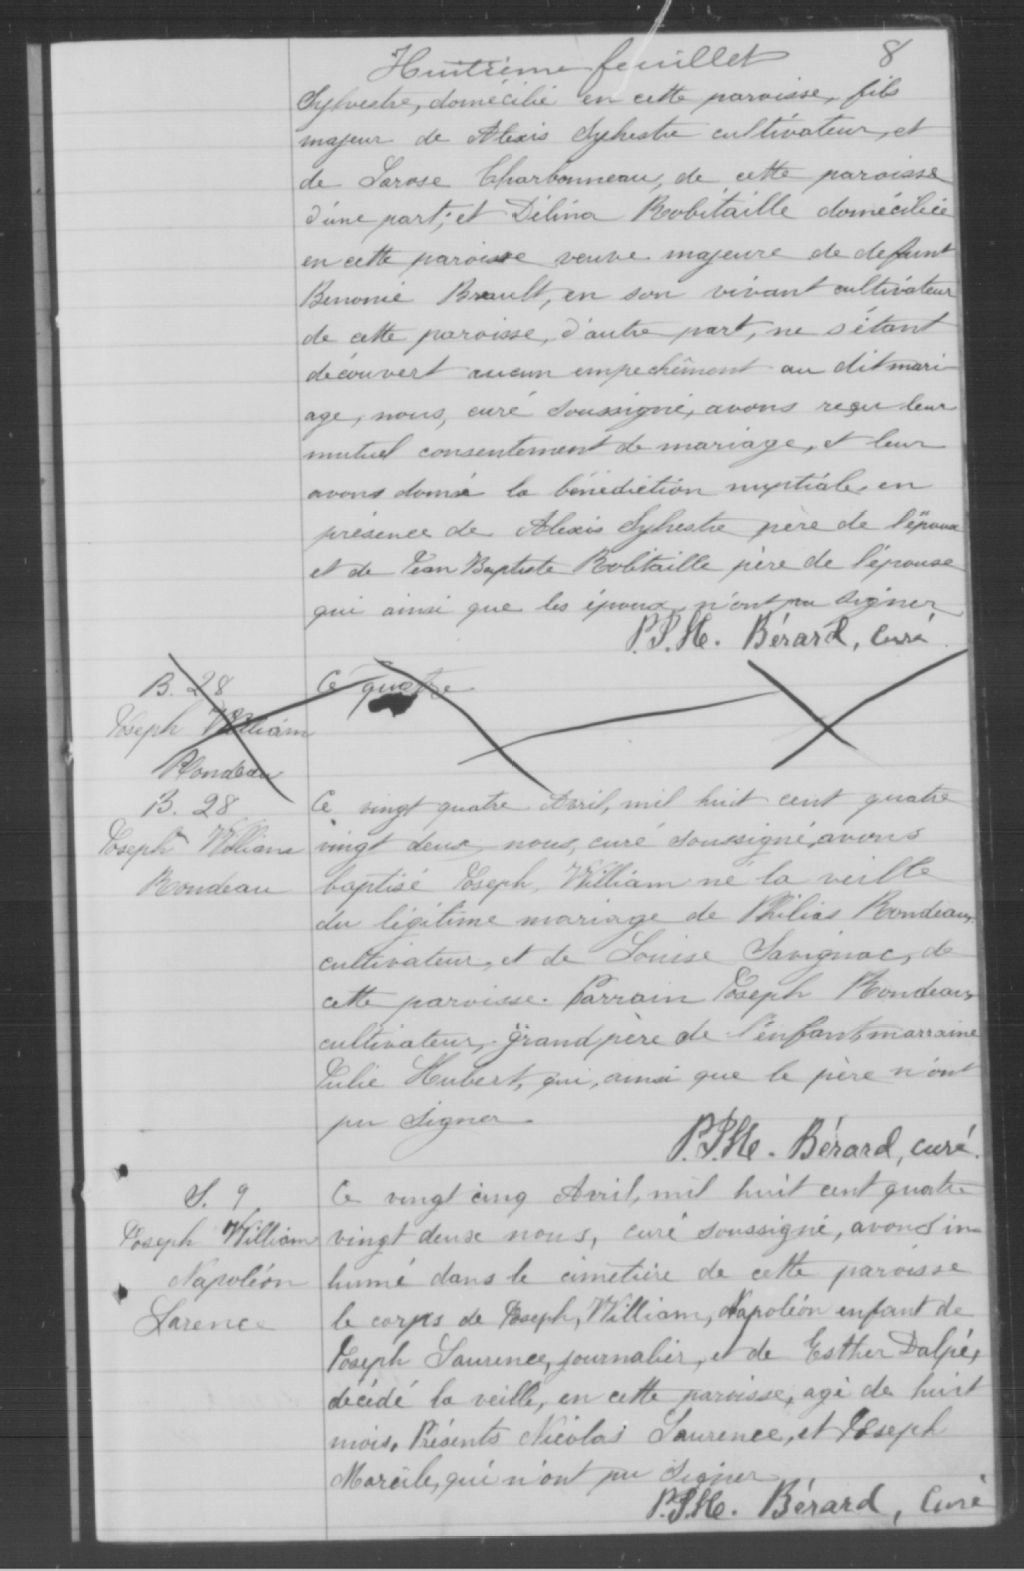 Huitième feuillet 8
Sylvestre, domicilié en cette paroisse, fils
majeur de Alexis Sylvestre cultivateur, et
de Larose Charbonneau, de cette paroisse
d'une part; et Délina Robitaille domiciliée
en cette paroisse veuve majeure de defunt
Benonie Brault, en son vivant cultivateur
de cette paroisse, d'autre part, ne s'étant
découvert aucun empechêment au dit mari
age, nous, curé soussigné, avons reçu leur
mutuel consentement de mariage, et leur
avons donné la bénédiction nuptiale en
présence de Alexis Sylvestre père de l'époux
et de Jean Baptiste Robitaille père de l'épouse
qui ainsi que les époux n'ont pu signer
Bérard, Curé
B. 28
Joseph William
Rondeau
Ce quatre
B. 28
Joseph William
Rondeau
Ce vingt quatre Avril, mil huit cent quatre
vingt deux, nous, curé soussigné, avons
baptisé Joseph, William né la veille
du légitime mariage de Philias Rondeau,
cultivateur, et de Louise Savignac, de
cette paroisse. Parrain Joseph Rondeau,
cultivateur, grand père de l'enfant, marraine
Julie Hubert, qui, ainsi que le père n'ont
pu signer
Bérard, curé.
S. 9
Joseph William
Napoléon
Larence
Ce vingt cinq Avril, mil huit cent quatre
vingt deux nous, curé soussigné, avons in
humé dans le cimetière de cette paroisse
le corps de Joseph, William, Napoléon enfant de
Joseph Laurence, journalier, et de Esther Dalpé,
décédé la veille, en cette paroisse, agé de huit
mois. Présents Nicolas Laurence, et Joseph
Marcile, qui n'ont pu signer
Bérard, Curé